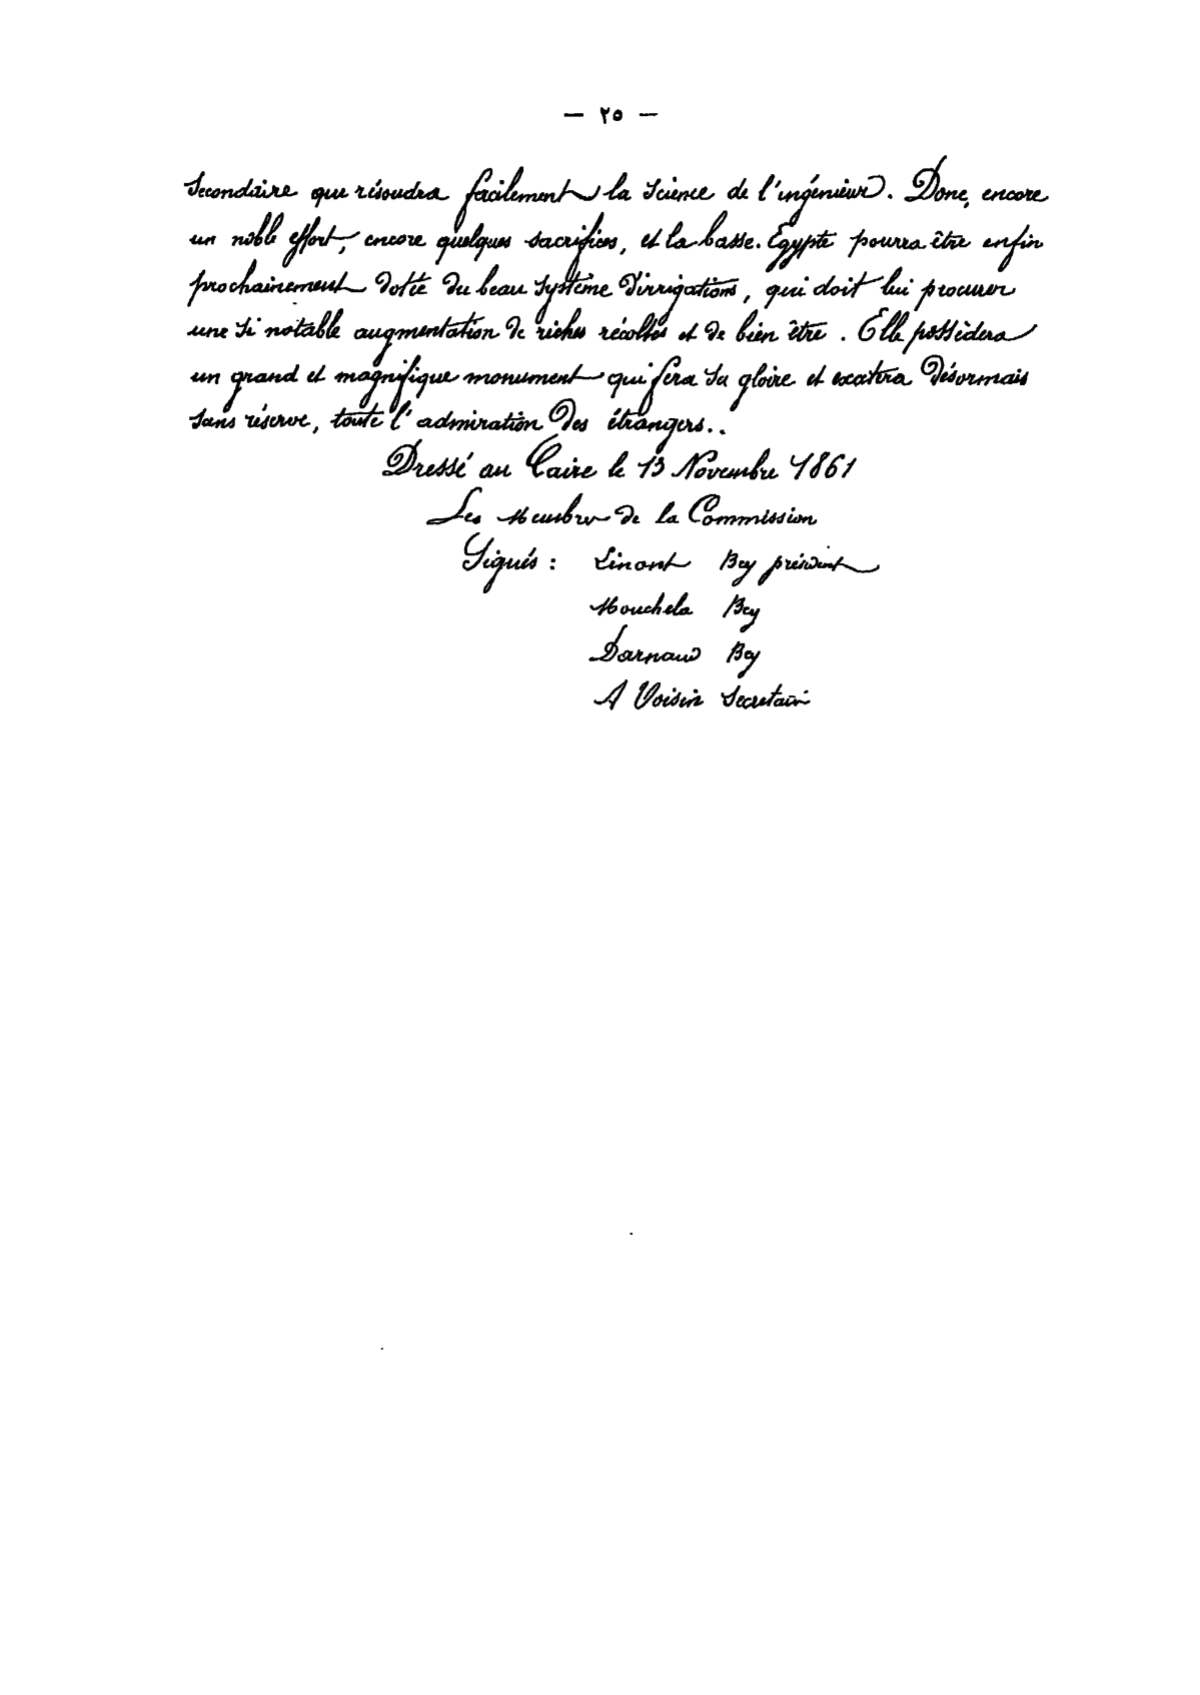 — ٢٥ —
secondaire que résoudra facilement la science de l'ingénieur. Donc, encore
un noble effort, encore quelques sacrifices, et la basse. Egypte pourra être enfin
prochainement dotée du beau système d'irrigations, qui doit lui procurer
une si notable augmentation de riches récoltes et de bien être. Elle possèdera
un grand et magnifique monument qui fera sa gloire et excitera désormais
sans réserve, toute l'admiration des étrangers..
Dressé au Caire le 13 Novembre 1861
Les Membres de la Commission
Signés : Linant Bey président
Mouchela Bey
Darnaud Bey
A Voisin Secretair